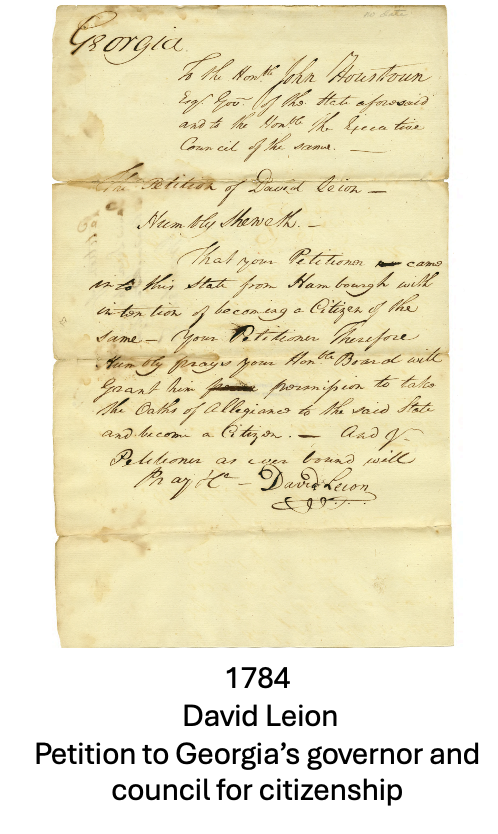 no date
Georgia
To the Honble John Houstoun
Esqr Govr of the State aforesaid
and to the Honble the Executive
Council of the same. —
The Petition of David Leion —
Humbly Sheweth. —
That your Petitioner came
into this State from Hambourgh with
intention of becoming a Citizen of the
same — Your Petitioner Therefore
Humbly prays your Honble Board will
Grant him permission to take
the Oaths of Allegiance to the said State
and become a Citizen. — And yr
Petitioner as ever bound will
Pray &c — David Leion
1784
David Leion
Petition to Georgia’s governor and
council for citizenship